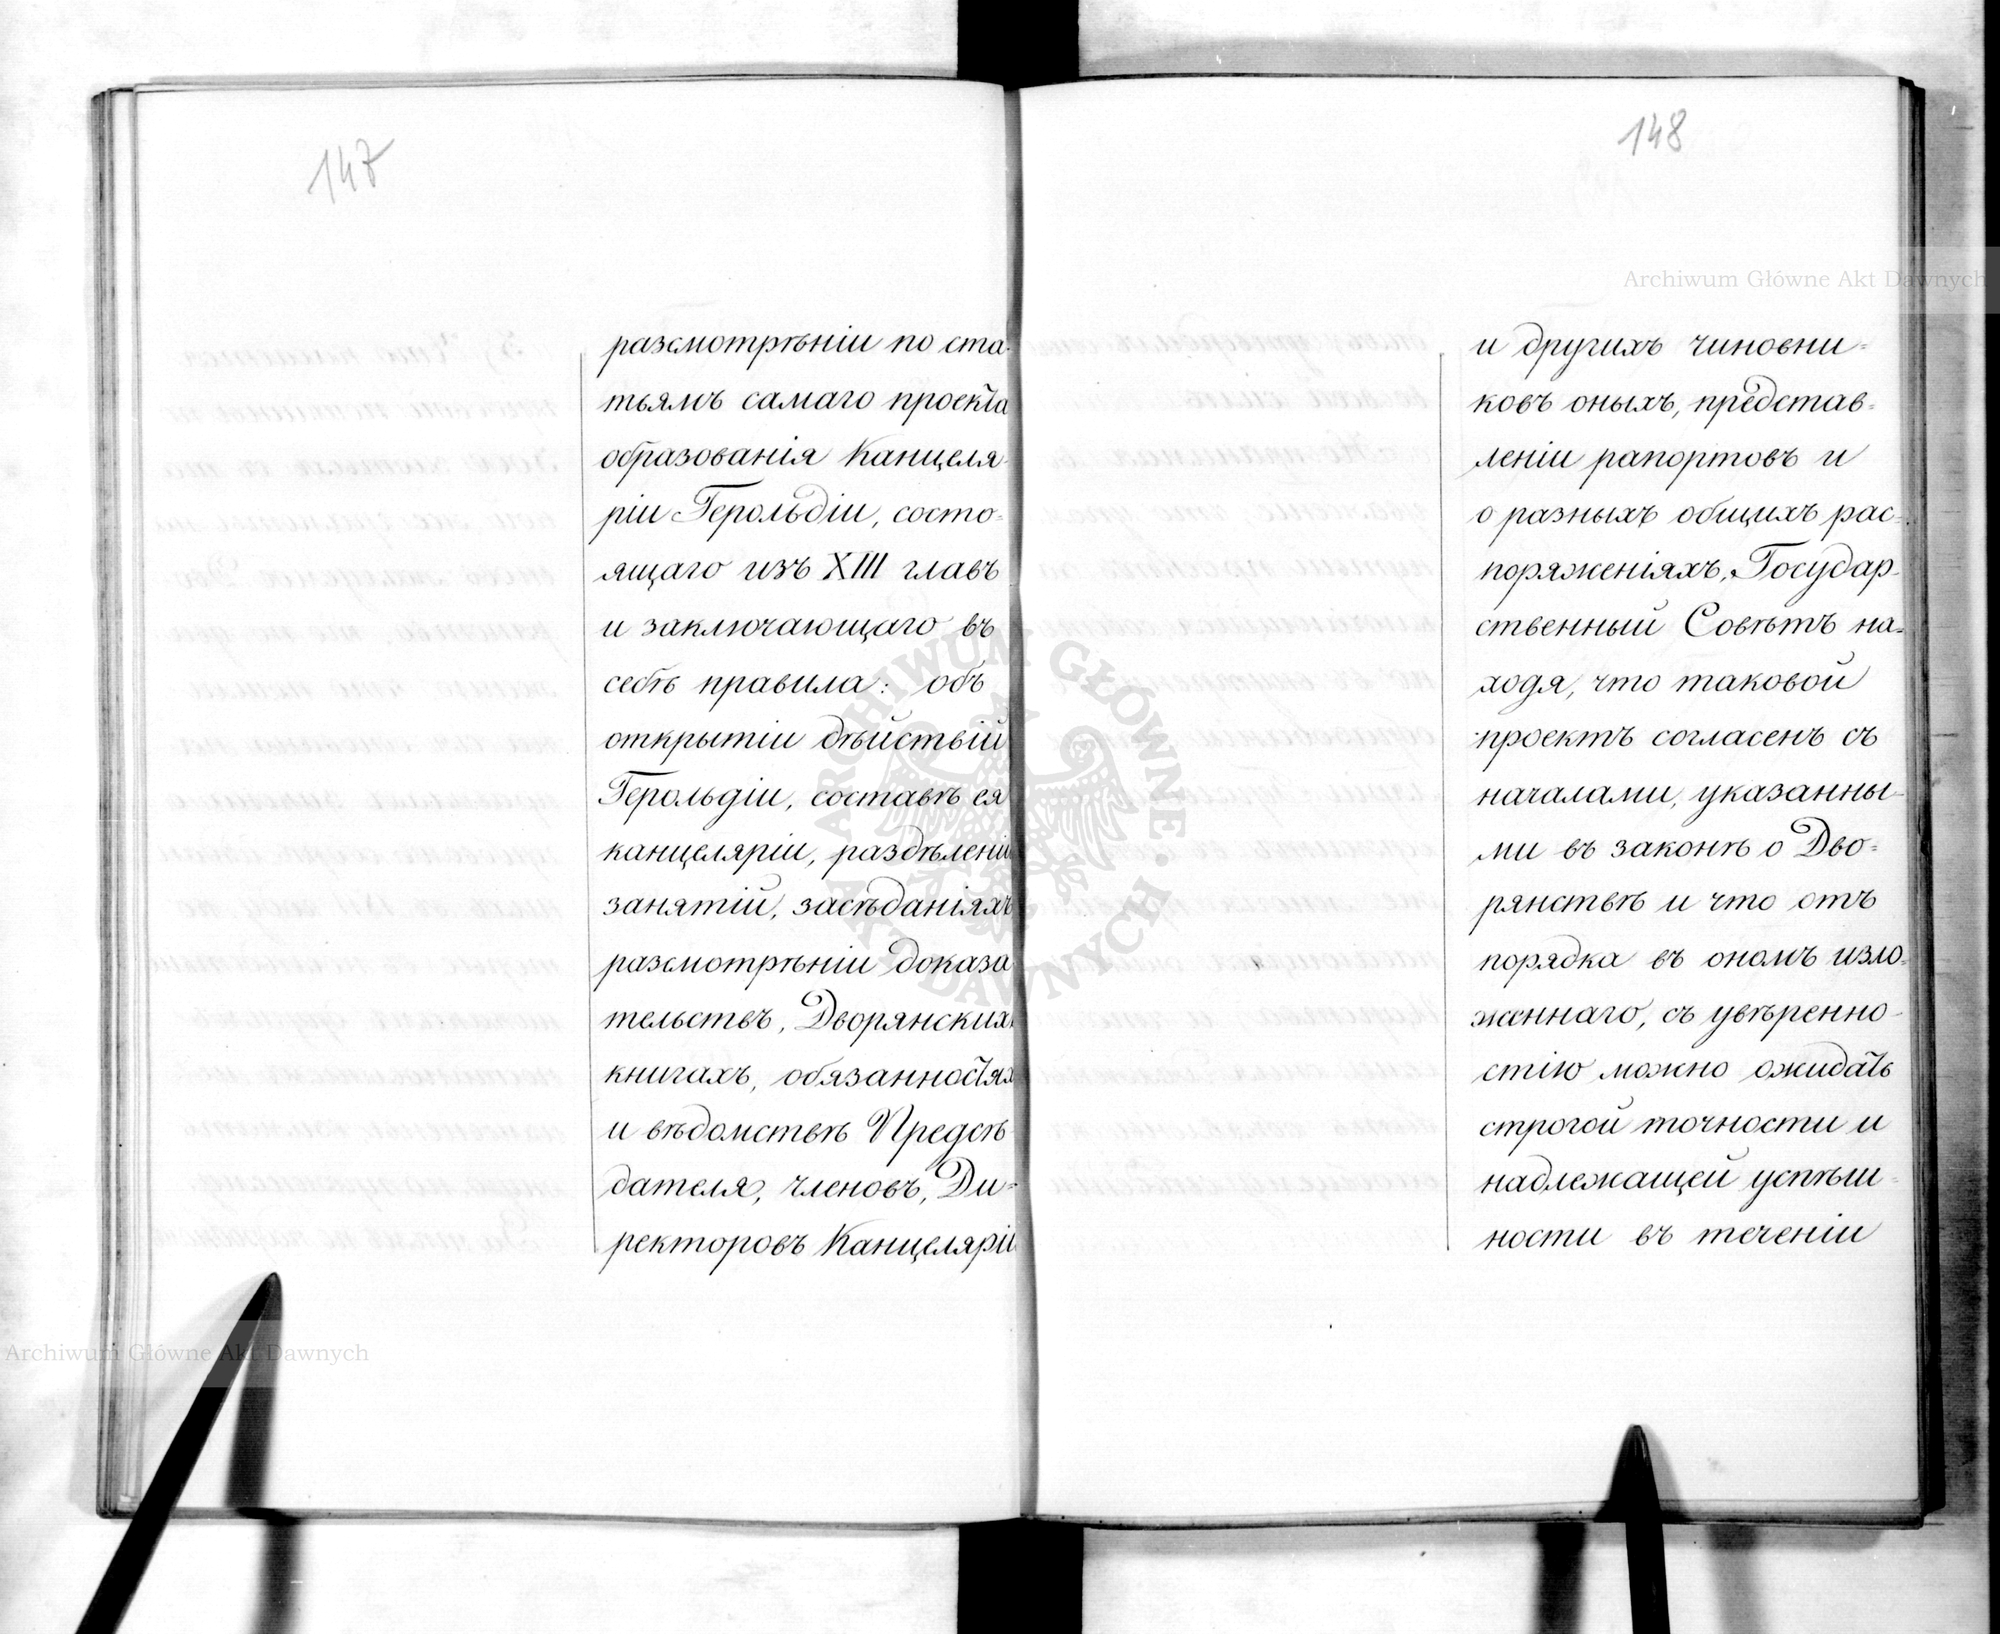 147
разсмотрѣніи по ста-
тьямъ самаго проекта
образованія Канцеля-
ріи Герольдіи, состо-
ящаго изъ XIII главъ
и заключающаго въ
себѣ правила: объ
открытіи дѣйствій
Герольдіи, составѣ ея
канцеляріи, раздѣленіи
занятій, засѣданіяхъ
разсмотрѣніи доказа
тельствъ, Дворянскихъ
книгахъ, обязанностях
и вѣдомствѣ Предсѣ-
дателя, членовъ, Ди-
ректоровъ Канцеляріи
148
и другихъ чиновни-
ковъ оныхъ, представ-
леніи рапортовъ и
о разныхъ общихъ рас-
поряженіяхъ, Государ-
ственный Совѣтъ на-
ходя, что таковой
проектъ согласенъ съ
началами, указанны-
ми въ законѣ о Дво-
рянствѣ и что отъ
порядка въ ономъ изло-
женнаго, съ увѣренно-
стію можно ожидать
строгой точности и
надлежащей успѣш-
ности въ теченіи
Archiwum Główne Akt Dawnych
ARCHIWUM GŁÓWNE AKT DAWNYCH
Archiwum Główne Akt Dawnych